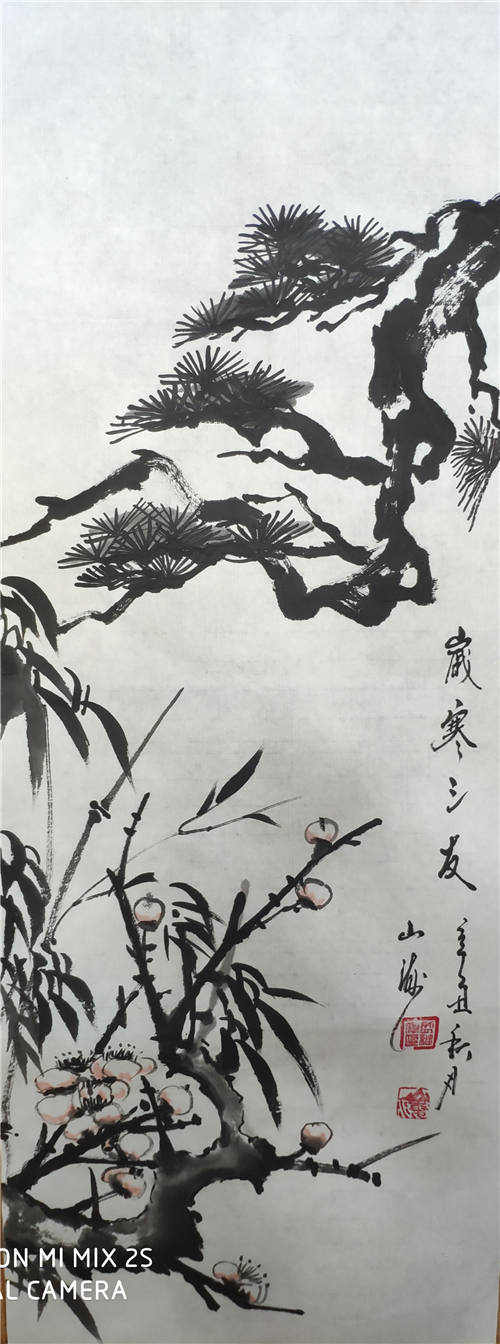 歲寒三友
辛丑秋月
山海
ON MI MIX 2S
AL CAMERA